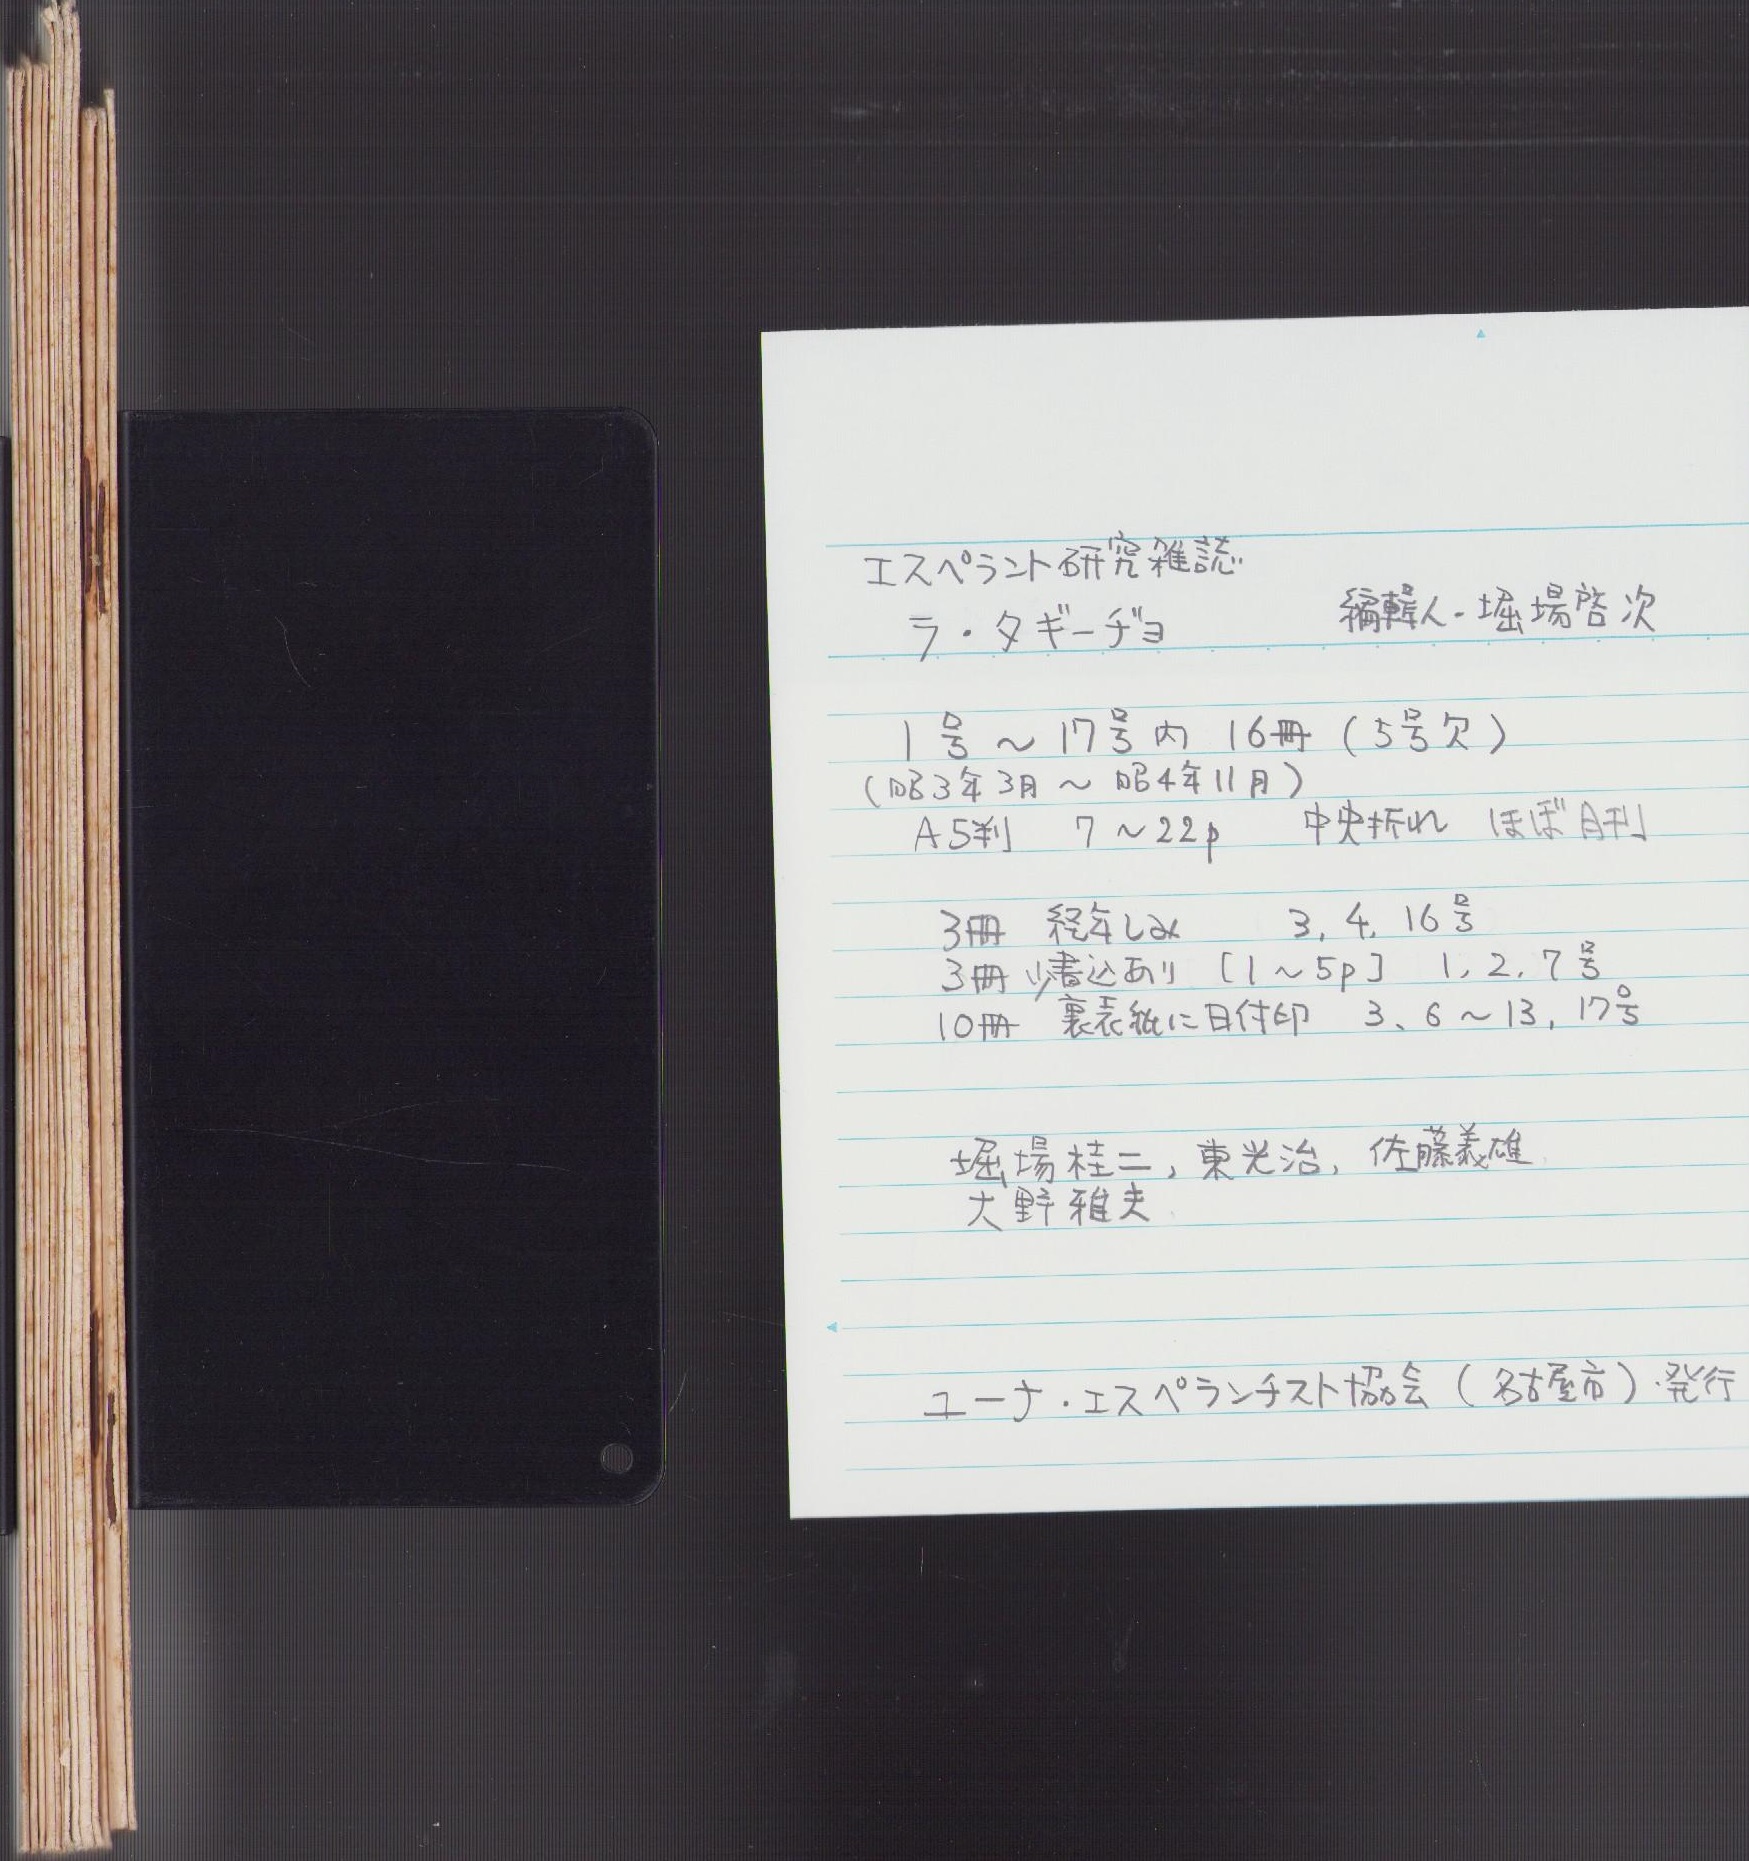 エスペラント研究雑誌
ラ・タギーヂョ 編輯人・堀場啓次
1号～17号内 16冊（5号欠）
（昭3年3月～昭4年11月）
A5判 7～22p 中央折れ ほぼ月刊
3冊 経年しみ 3, 4, 16号
3冊 少書込あり [1～5p] 1, 2, 7号
10冊 裏表紙に日付印 3、6～13, 17号
堀場桂二, 東光治, 佐藤義雄
大野雅夫
ユーナ・エスペランチスト協会（名古屋市）・発行